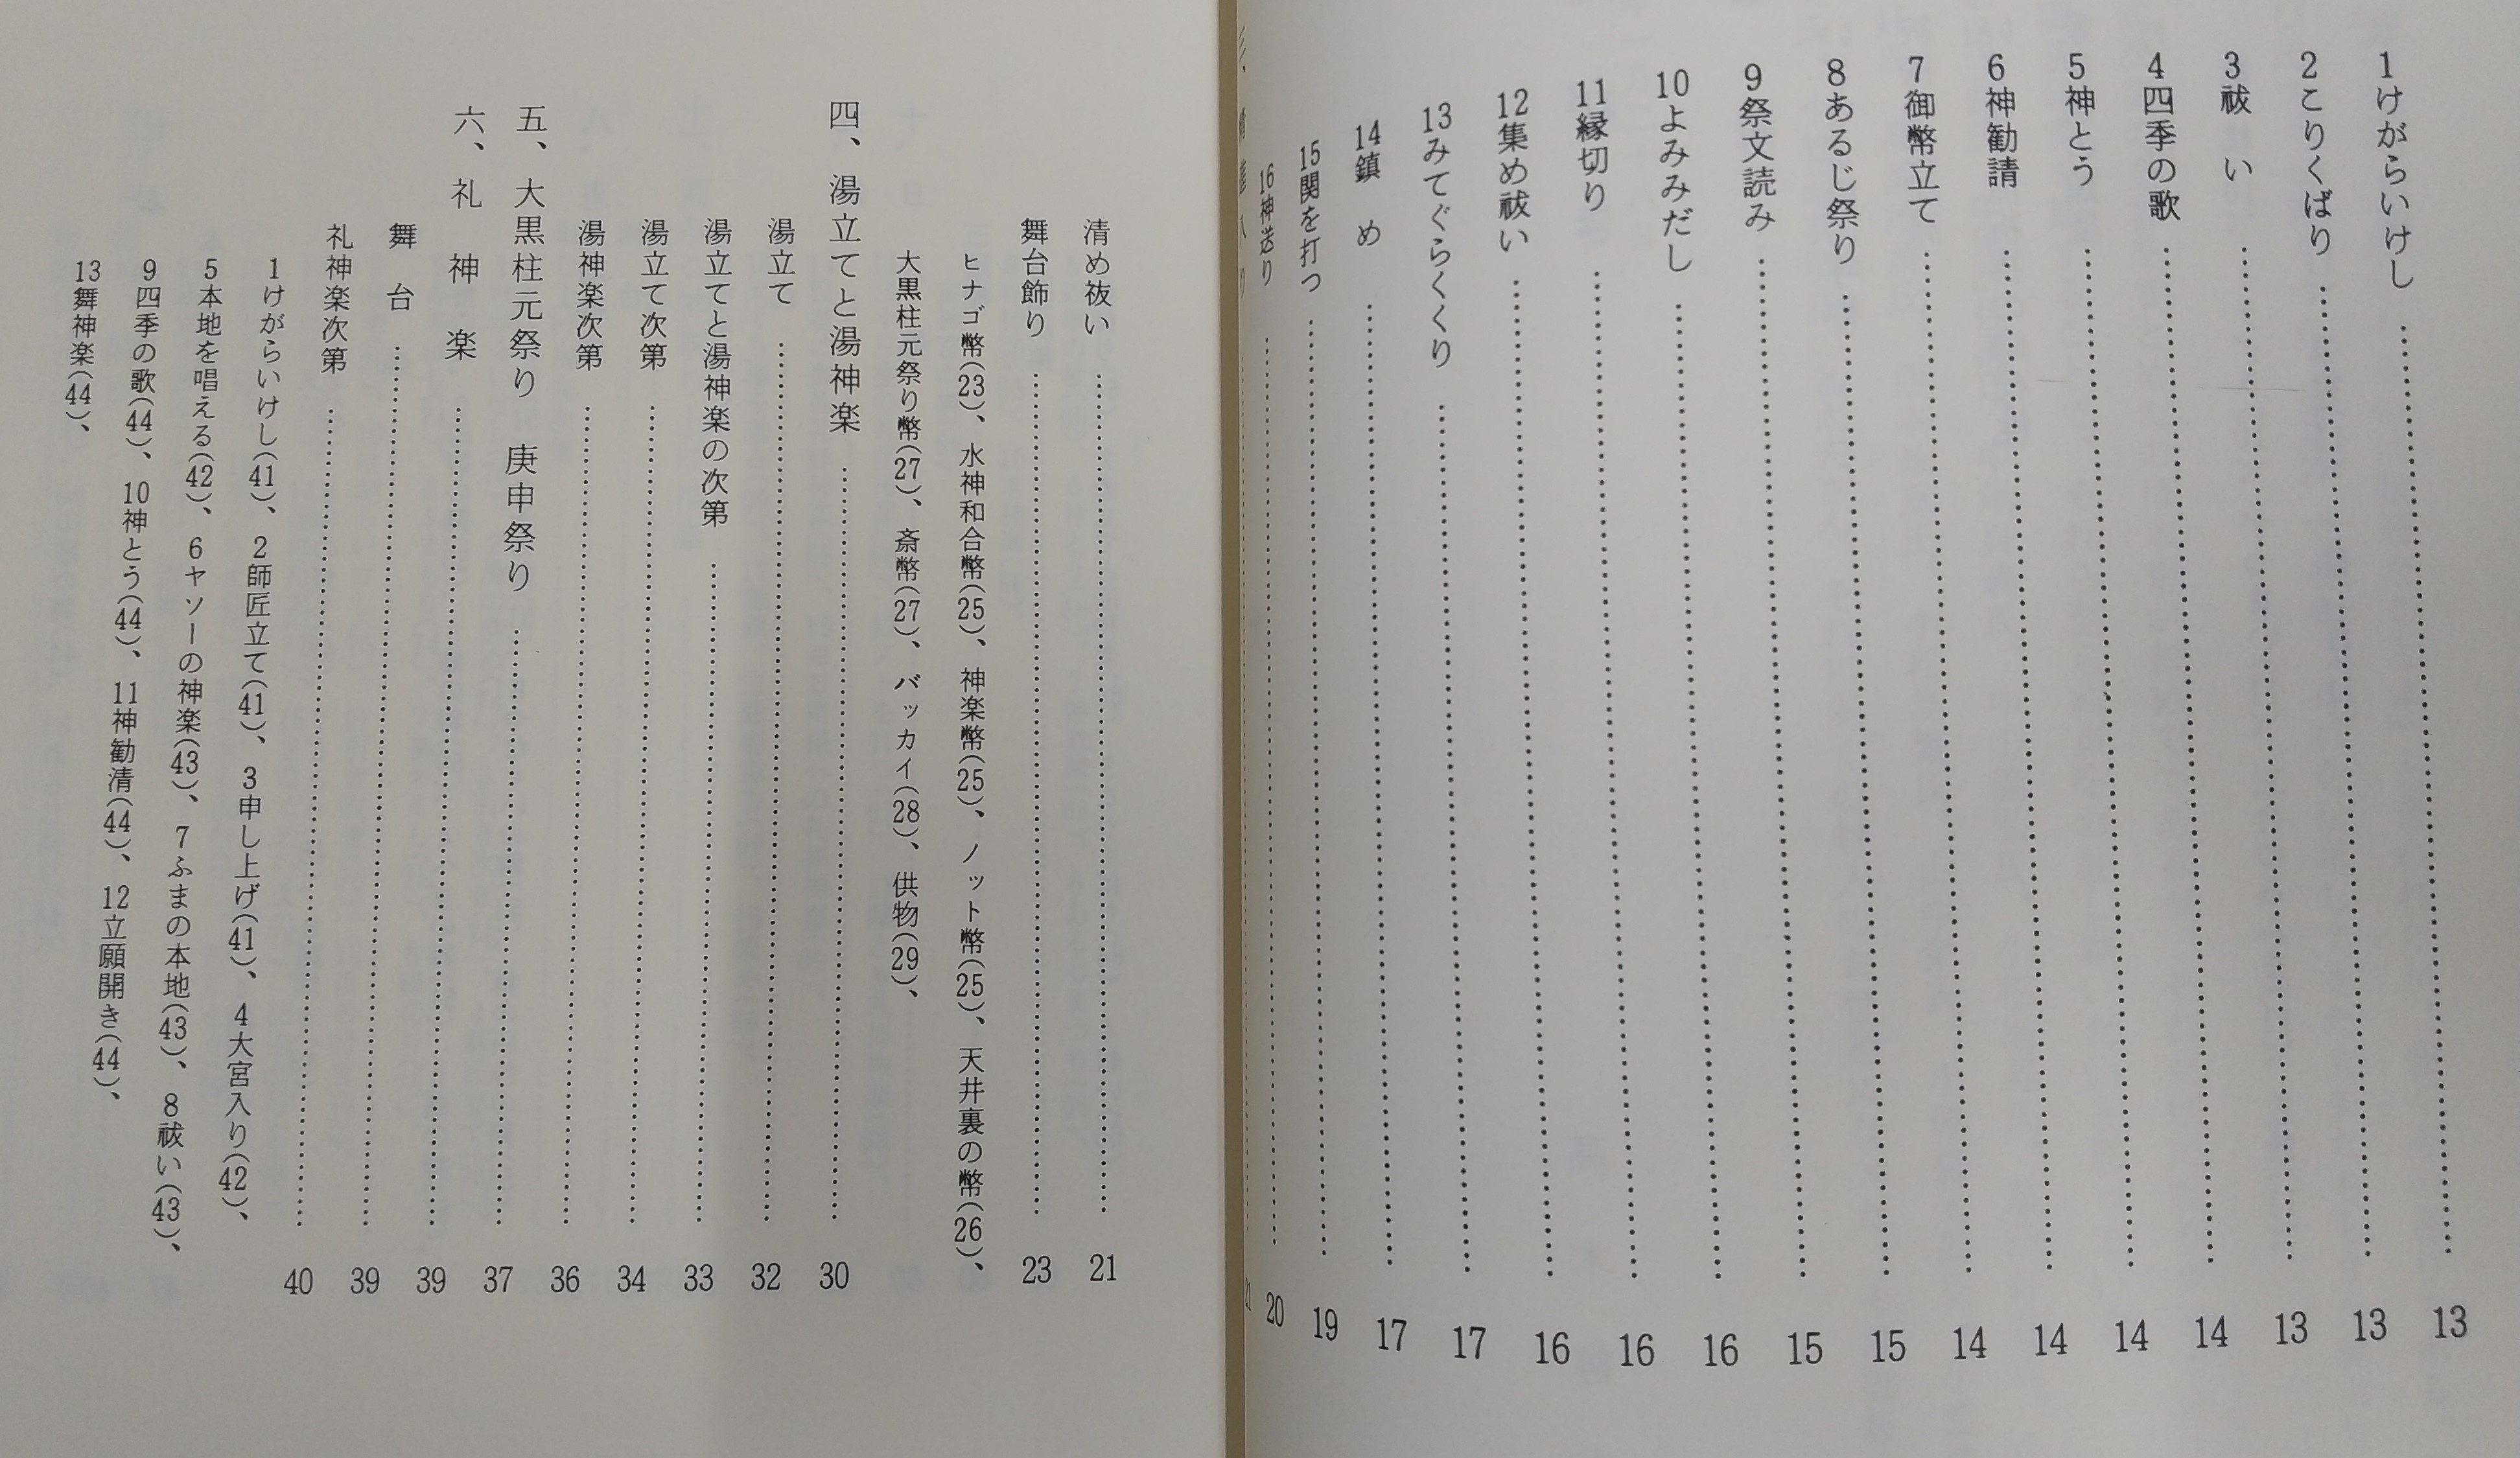 1けがらいけし……13
2こりくばり……13
3祓　い……13
4四季の歌……14
5神とう……14
6神勧請……14
7御幣立て……14
8あるじ祭り……15
9祭文読み……15
10よみみだし……16
11縁切り……16
12集め祓い……16
13みてぐらくくり……17
14鎮　め……17
15関を打つ……19
16神送り……20
三、……21
清め祓い……21
舞台飾り……23
ヒナゴ幣(23)、水神和合幣(25)、神楽幣(25)、ノット幣(25)、天井裏の幣(26)、
大黒柱元祭り幣(27)、斎幣(27)、バッカイ(28)、供物(29)、
四、湯立てと湯神楽……30
湯立て……32
湯立てと湯神楽の次第……33
湯立て次第……34
湯神楽次第……36
五、大黒柱元祭り　庚申祭り……37
六、礼　神　楽……39
舞　台……39
礼神楽次第……40
1けがらいけし(41)、2師匠立て(41)、3申し上げ(41)、4大宮入り(42)、
5本地を唱える(42)、6ヤソーの神楽(43)、7ふまの本地(43)、8祓い(43)、
9四季の歌(44)、10神とう(44)、11神勧清(44)、12立願開き(44)、
13舞神楽(44)、